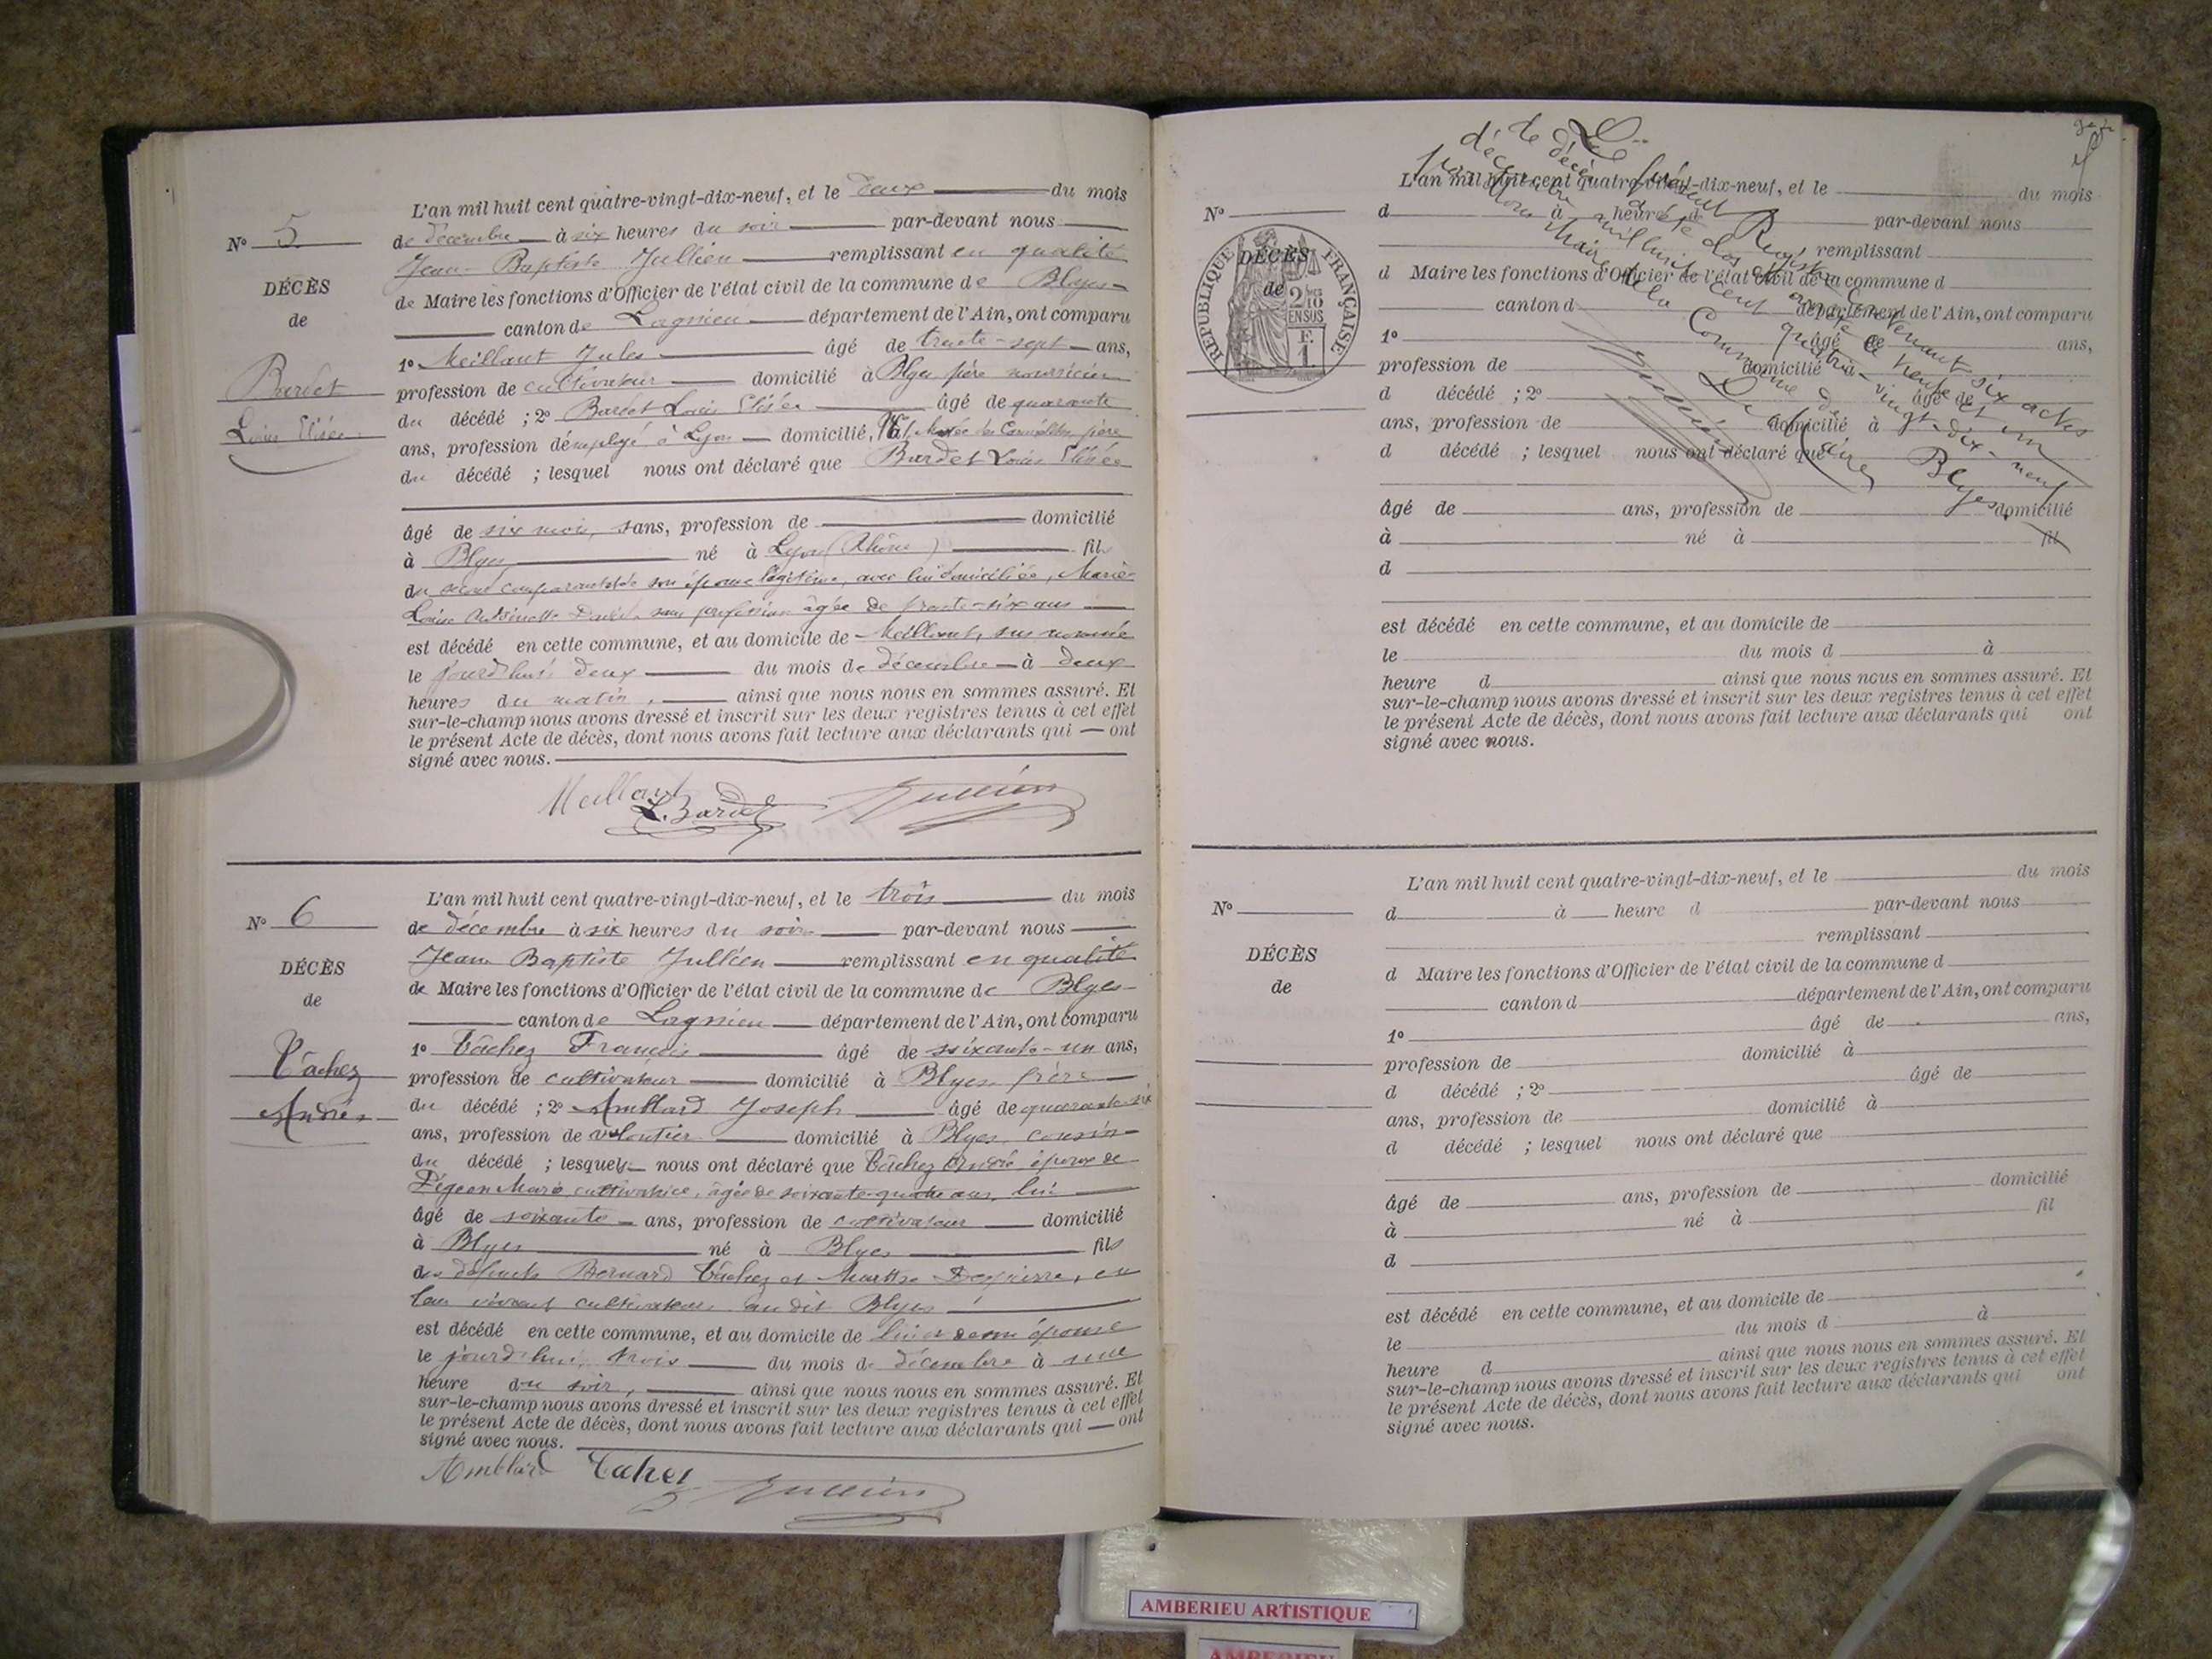 L'an mil huit cent quatre-vingt-dix-neuf, et le deux du mois
de décembre à six heures du soir par-devant nous
Jean-Baptiste Jullien remplissant en qualité
de Maire les fonctions d'Officier de l'état civil de la commune de Blyes
canton de Lagnieu département de l'Ain, ont comparu
1º Meillant Jules âgé de trente-sept ans,
profession de cultivateur domicilié à Blyes père nourricier
du décédé ; 2º Bardet Louis Elisée âgé de quarante
ans, profession d'employé à Lyon domicilié, père
du décédé ; lesquel nous ont déclaré que Bardet Louis Elisée
âgé de six mois, sans, profession de domicilié
à Blyes né à Lyon (Rhône) fils
du second comparant et de son épouse légitime, avec lui domiciliée, Marie-
Louise Antoinette sans profession âgée de trente-six ans
est décédé en cette commune, et au domicile de Meillant, sus nommé
le jourd'hui deux du mois de décembre à deux
heures du matin, ainsi que nous nous en sommes assuré. Et
sur-le-champ nous avons dressé et inscrit sur les deux registres tenus à cet effet
le présent Acte de décès, dont nous avons fait lecture aux déclarants qui ont
signé avec nous.
Nº 5
DÉCÈS
de
Bardet
Louis Elisée
Meillant
L. Bardet
Jullien
L'an mil huit cent quatre-vingt-dix-neuf, et le trois du mois
de décembre à six heures du soir par-devant nous
Jean Baptiste Jullien remplissant en qualité
de Maire les fonctions d'Officier de l'état civil de la commune de Blyes
canton de Lagnieu département de l'Ain, ont comparu
1º Tâchez François âgé de soixante-un ans,
profession de cultivateur domicilié à Blyes frère
du décédé ; 2º Amblard Joseph âgé de quarante-six
ans, profession de domicilié à Blyes cousin
du décédé ; lesquels nous ont déclaré que Tâchez André époux de
Pigeon Marie cultivatrice, âgée de soixante-quatre ans, lui
âgé de soixante ans, profession de cultivateur domicilié
à Blyes né à Blyes fils
des défunts Bernard Tâchez et Marthe en
leur vivant cultivateurs au dit Blyes
est décédé en cette commune, et au domicile de lui et de son épouse
le jourd'hui trois du mois de décembre à une
heure du soir, ainsi que nous nous en sommes assuré. Et
sur-le-champ nous avons dressé et inscrit sur les deux registres tenus à cet effet
le présent Acte de décès, dont nous avons fait lecture aux déclarants qui ont
signé avec nous.
Nº 6
DÉCÈS
de
Tâchez
André
Amblard Tachez Jullien
Le présent Registre
de décès a été clos et arrêté contenant six actes
décembre mil huit cent quatre-vingt-dix-neuf
par Nous Maire de la Commune de Blyes.
Le Maire
Jullien
L'an mil huit cent quatre-vingt-dix-neuf, et le du mois
d à heure d par-devant nous
remplissant
d Maire les fonctions d'Officier de l'état civil de la commune d
canton d département de l'Ain, ont comparu
1º âgé de ans,
profession de domicilié à
d décédé ; 2º âgé de
ans, profession de domicilié à
d décédé ; lesquel nous ont déclaré que
âgé de ans, profession de domicilié
à né à fil
d
est décédé en cette commune, et au domicile de
le du mois d à
heure d ainsi que nous nous en sommes assuré. Et
sur-le-champ nous avons dressé et inscrit sur les deux registres tenus à cet effet
le présent Acte de décès, dont nous avons fait lecture aux déclarants qui ont
signé avec nous.
Nº
DÉCÈS
de
RÉPUBLIQUE FRANÇAISE
2/10
EN SUS
F.
1
L'an mil huit cent quatre-vingt-dix-neuf, et le du mois
d à heure d par-devant nous
remplissant
d Maire les fonctions d'Officier de l'état civil de la commune d
canton d département de l'Ain, ont comparu
1º âgé de ans,
profession de domicilié à
d décédé ; 2º âgé de
ans, profession de domicilié à
d décédé ; lesquel nous ont déclaré que
âgé de ans, profession de domicilié
à né à fil
d
est décédé en cette commune, et au domicile de
le du mois d à
heure d ainsi que nous nous en sommes assuré. Et
sur-le-champ nous avons dressé et inscrit sur les deux registres tenus à cet effet
le présent Acte de décès, dont nous avons fait lecture aux déclarants qui ont
signé avec nous.
Nº
DÉCÈS
de
AMBERIEU ARTISTIQUE
AMBERIEU